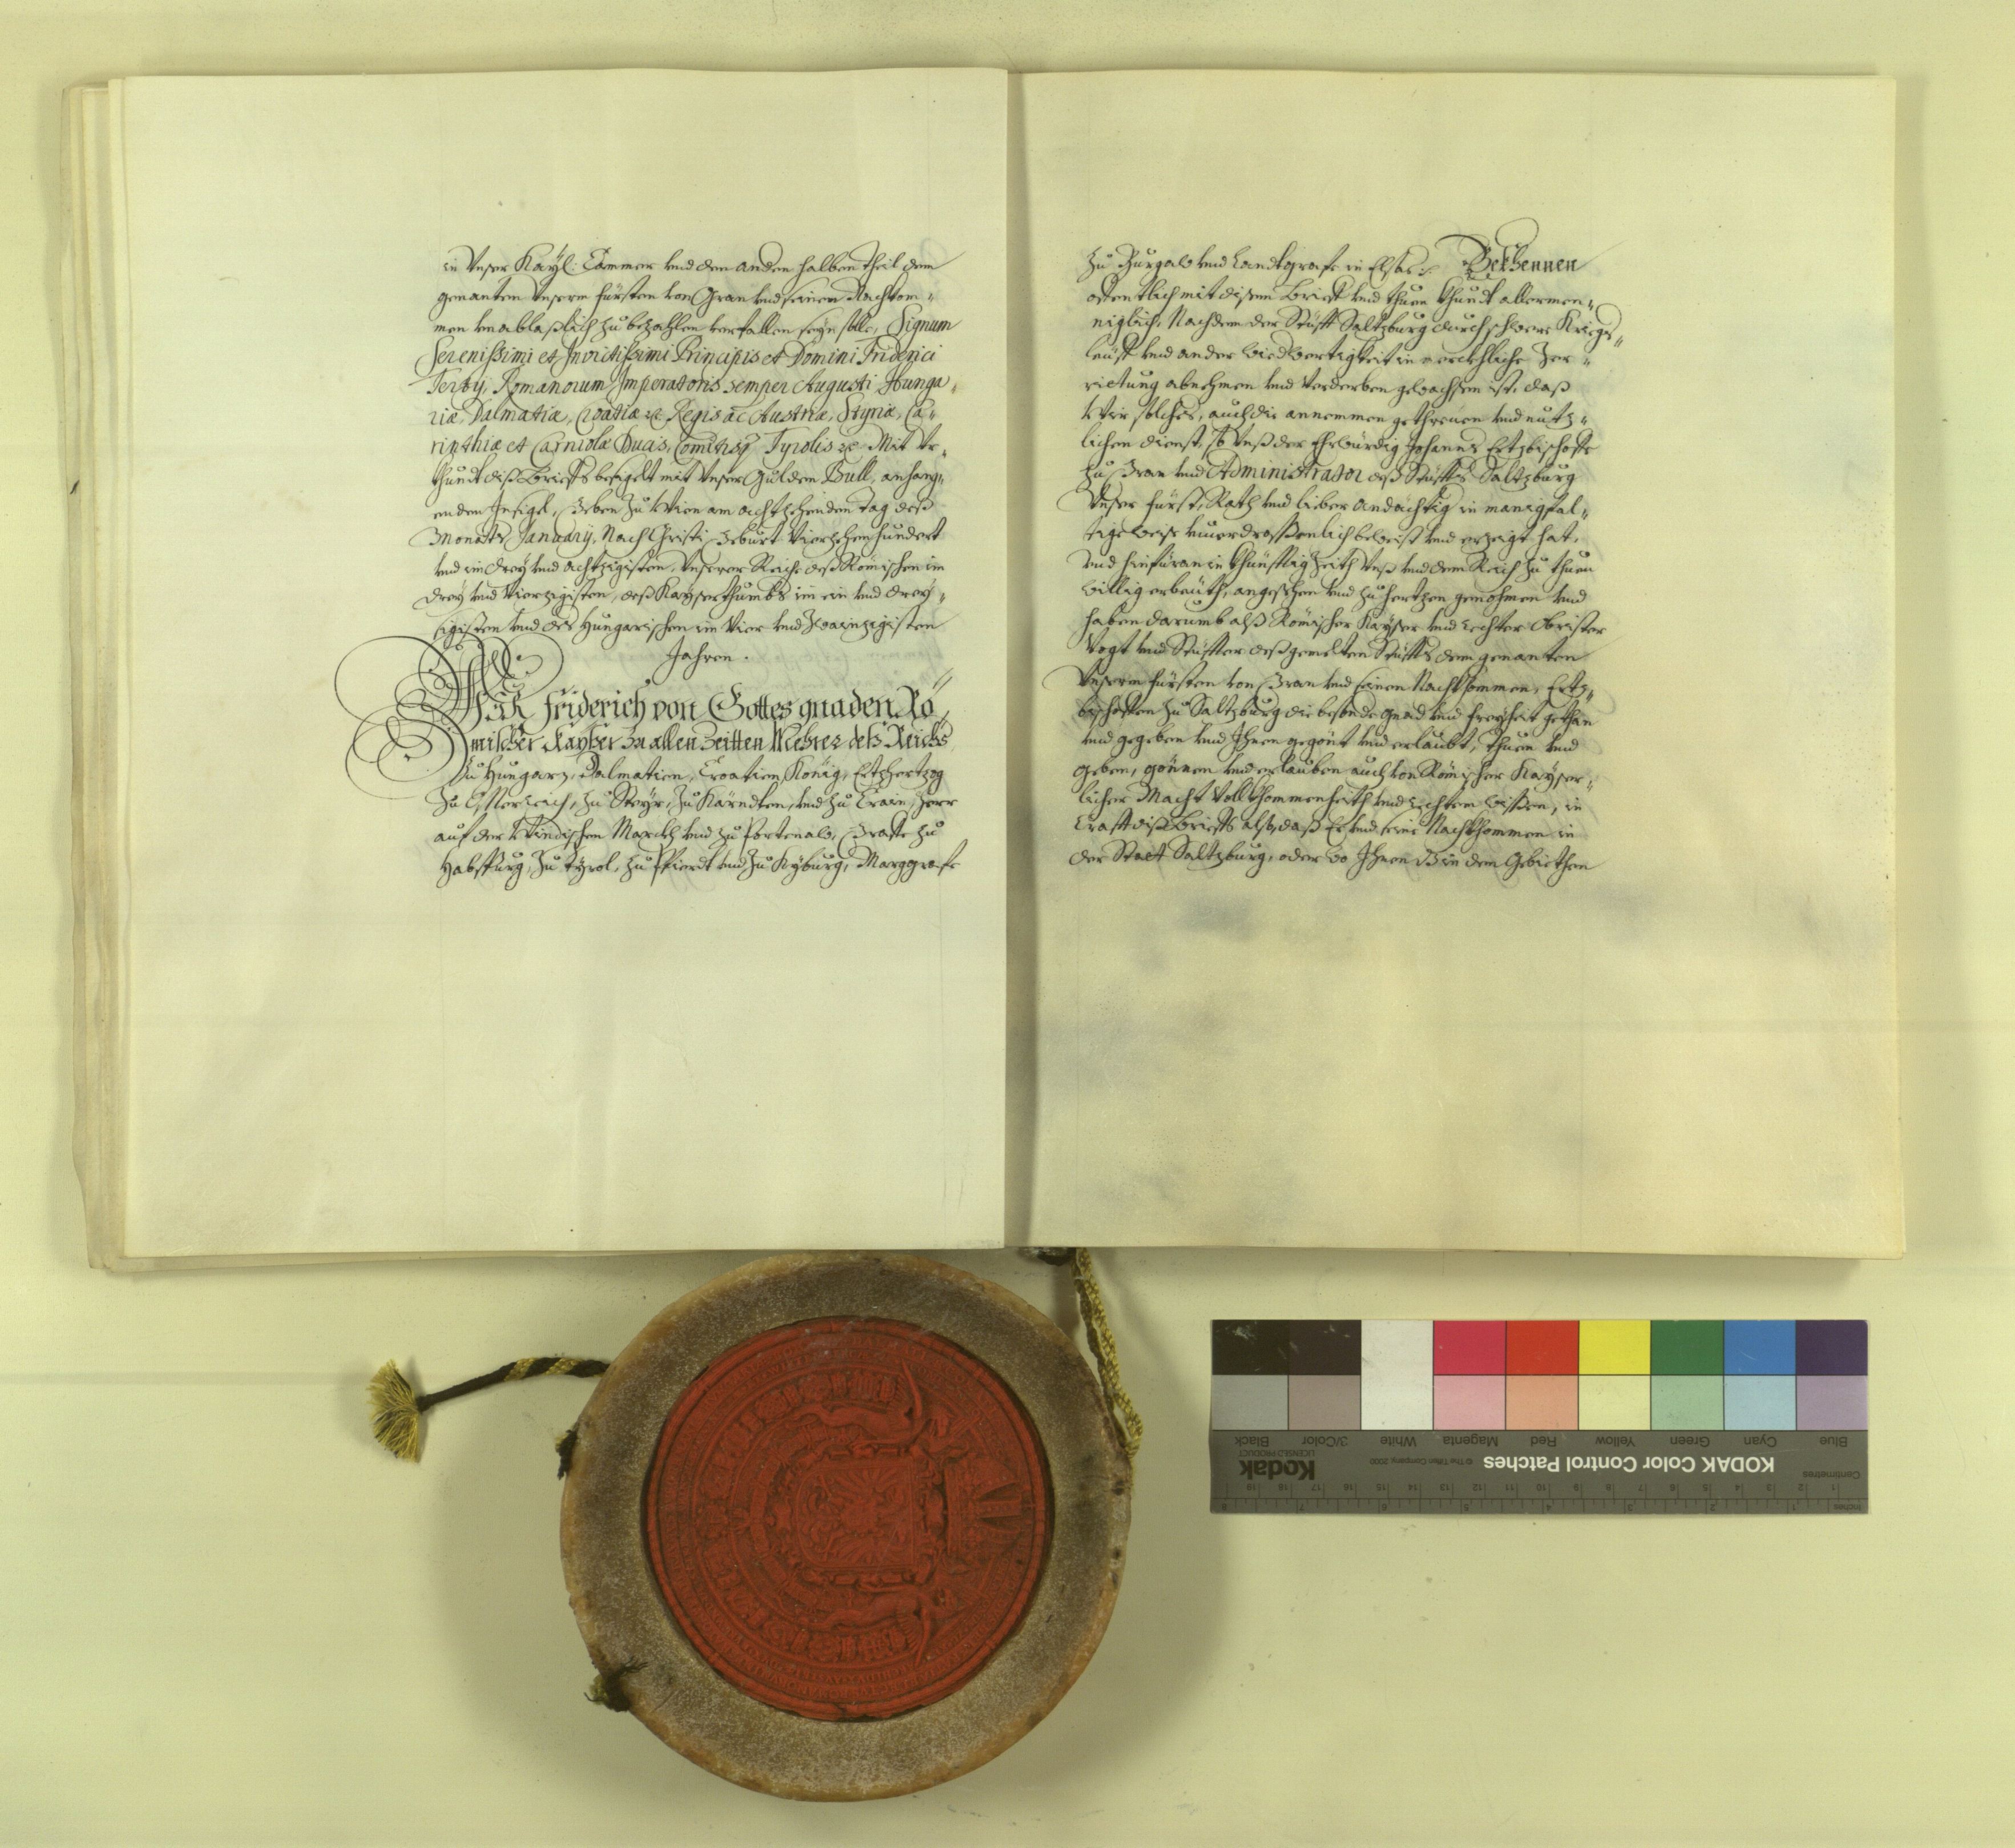 in Vnser Kayl: Cammer vnd den anden halben theil dem
genanten Vnserm fürsten von Gran vnd seinen Nachkom=
men vnablaßlich zu bezahlen verfallen seyn solle, Signum
Serenißimi et Invictißimi Principis et Domini Friderici
Tertÿ, Romanorum Imperatoris semper Augusti Hunga=
riæ, Dalmatiæ, Croatiæ ꝛc Regis ac Austriæ, Styriæ, Ca=
rinthiæ et Carniolæ Ducis, Comitisq Tyrolis ꝛc Mit Vr=
khundt diß Brieffs besigelt mit Vnser Gulden Bull, anhang=
enden Insigel, Geben zu Wien am achtzehenden Tag deß
Monats January, Nach Christi Geburt Vierzehenhundert
vnd im drey vnd achtzigisten, Vnserer Reiche deß Römischen im
drey vnd Vierzigisten, deß Kayserthumbs im ein vnd drey=
sigisten vnd des Hungarischen im Vier vnd Zwainzigisten
Jahren.
Wir Friderich von Gottes gnaden Rö=
mischer Kayser Zu allen Zeitten Mehrer deß Reichs
Zu Hungarn, Dalmatien, Croatien König, Ertzhertzog
Zu Össterreich, Zu Steyr, Zu Kärndten, vnd Zu Crain, Herr
auf der Windischen Marckh vnd zu Portenaw, Graffe Zu
Habspurg, Zu Tyrol, Zu Pfierdt vnd Zu Kyburg, Marggrafe
Zu Burgaw vnd Landtgrafe in Elsas: Bekhennen
offentlich mit disem Brieff vnd thuen khundt allermen=
niglich, Nachdem der Stüfft Saltzburg durch schwere Kriegs=
leüff vnd ander Widwertigkeit in merckhliche Zer=
rittung abnehmen vnd Verderben gewachsen ist, daß
Wir solches, auch die annemmen getreuen vnd nutz=
lichen dienst, so Vnß der Ehrwürdig Johanns Ertzbischoffe
Zu Gran vnd Administrator deß Stüffts Saltzburg
Vnser fürst, Rath vnd lieber andächtig in manigfal=
tige weise vnuerdrossenlich beweist vnd erzeigt hat,
vnd hinfüran in khünfftig Zeith Vnß vnd dem Reich zu thuen
willig erbeüth, angesehen vnd zu hertzen genohmen vnd
haben darumb alß Römischer Kayser vnd rechter Obrister
Vogt vnd Stüffter deß gemelten Stüffts dem genanten
Vnserm fürsten von Gran vnd seinen Nachkommen, Ertz=
bischoffen zu Saltzburg die besonde gnad vnd freyheit gethan
vnd gegeben vnd Ihnen gegönt vnd erlaubt, thuen vnd
geben, gönnen vnd erlauben auch von Römischer Kayser=
licher Macht Vollkhommenheith vnd rechtem wißen, in
Crafft diß Brieffs also, daß Er vnd seine Nachkhommen in
der Statt Saltzburg, oder wo Ihnen Es in dem Gebiethen
KODAK Color Control Patches
Kodak
LICENSED PRODUCT
© The Tiffen Company, 2000
Blue Cyan Green Yellow Red Magenta White 3/Color Black
Centimetres
Inches